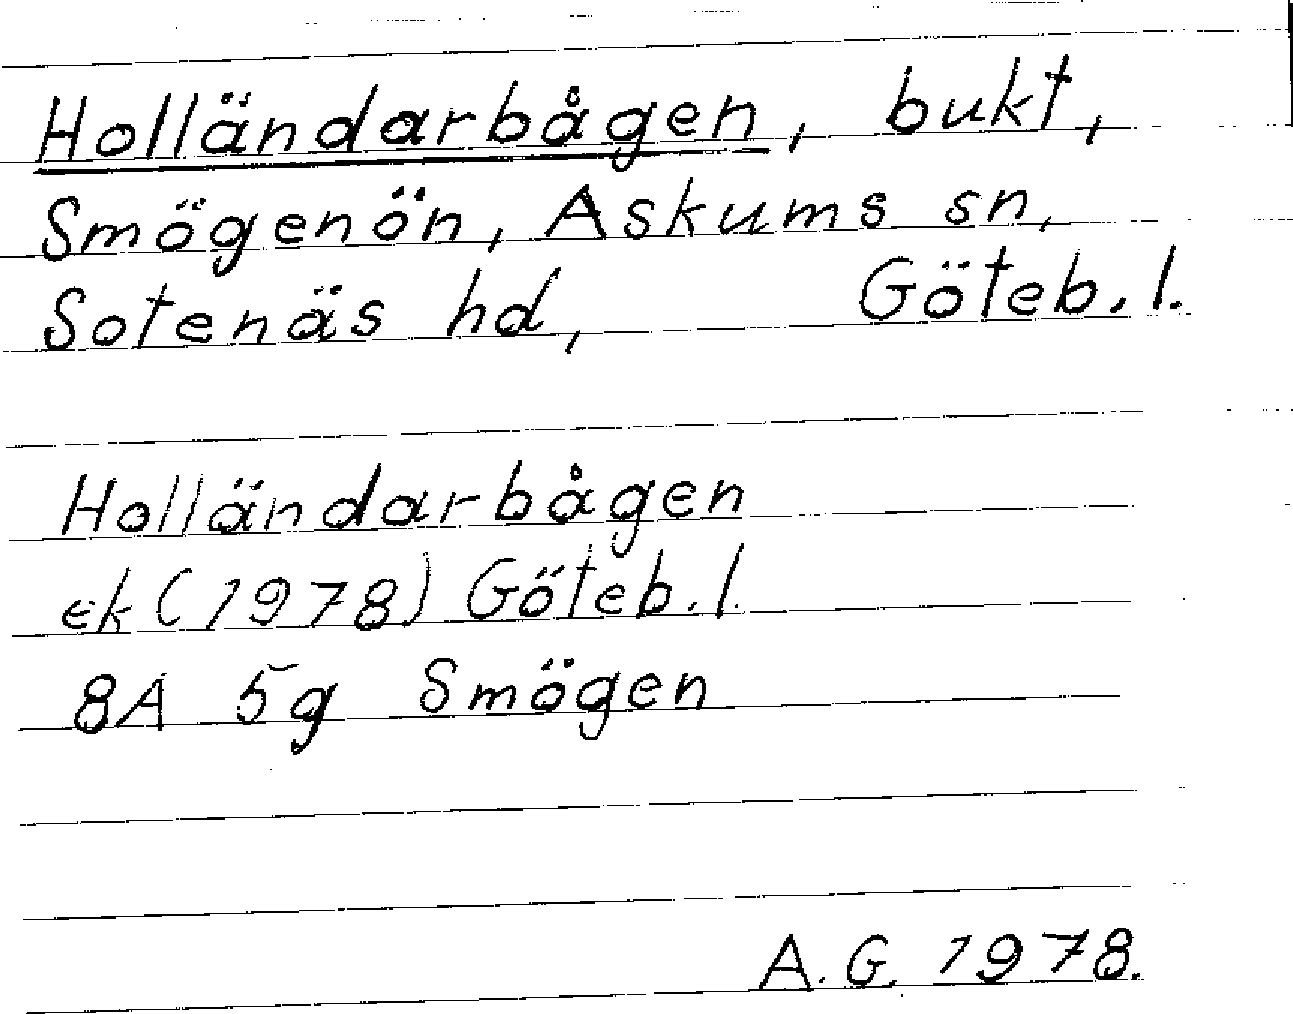 Holländarbågen, bukt,
Smögenön, Askums sn,
Sotenäs hd, Göteb. l.
Holländarbågen
ek (1978) Göteb. l.
8A 5g Smögen
A. G. 1978.